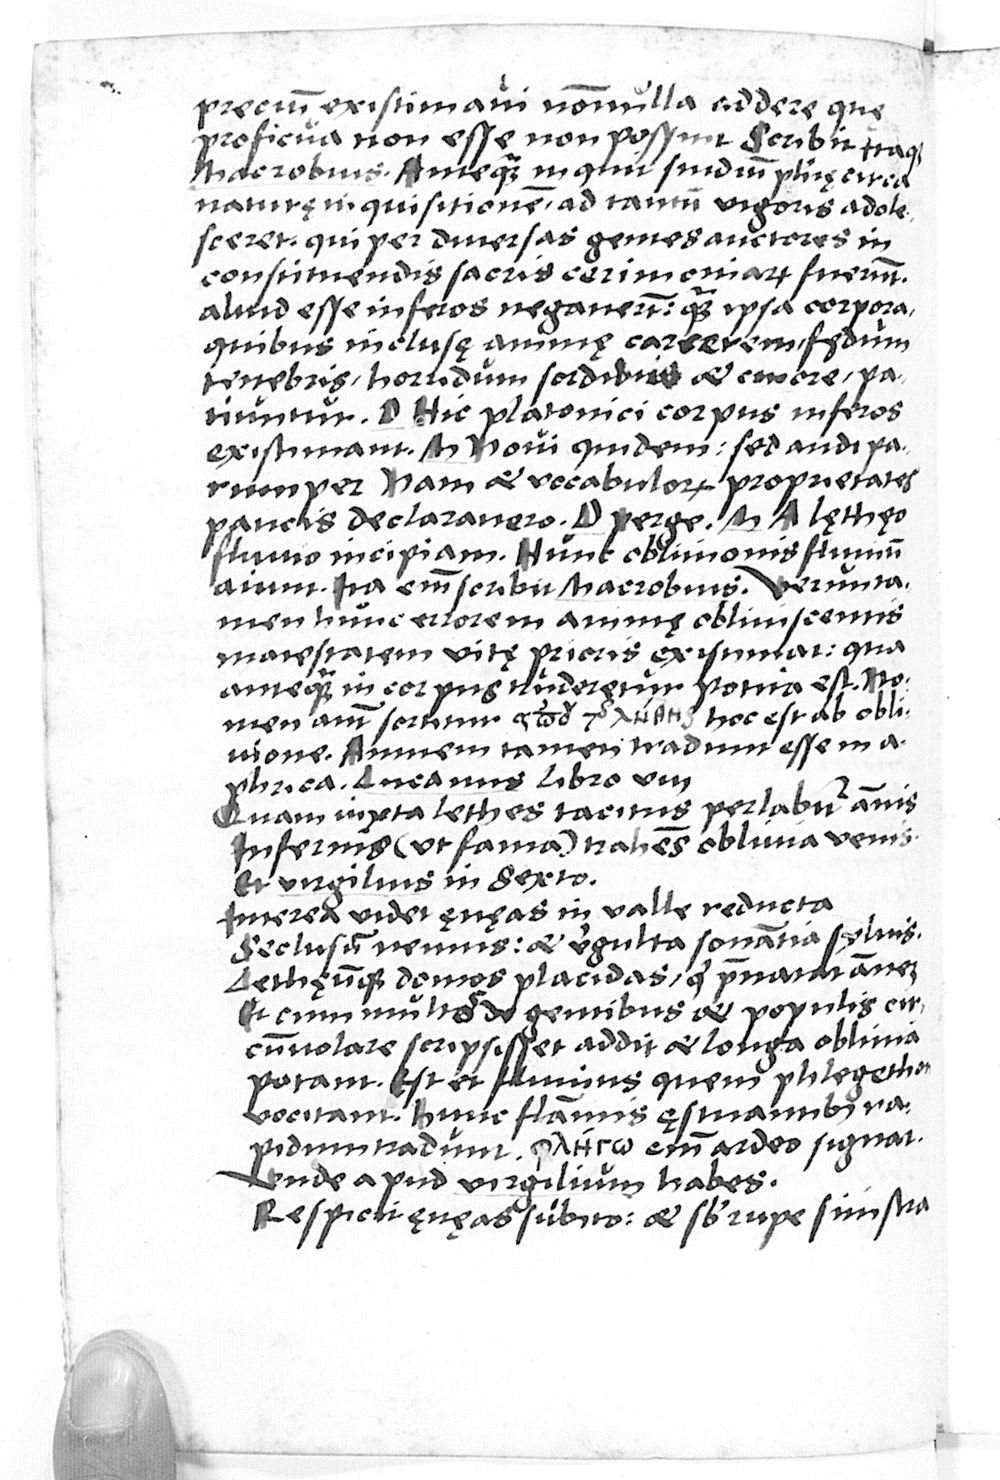 preciū existimavi nōnulla addere que
proficua non esse non possunt Scribit itaq3
Macrobius. Anteq̃ inquit studiū phię circa
naturę inquisitionē, ad tantū vigoris adole,
sceret. qui per diversas gentes auctores in
constituendis sacris cerimoniaꝝ fuerūt.
aliud esse inferos negaverūt: q̃ ipsa corpora,
quibus inclusę animę carcerem, fędum
tenebris, horridum sordibus & cruore, pa,
tiuntur. D Hic platonici corpus inferos
existimant. M Novi quidem: sed audi pa,
rumper Nam & vocabuloꝝ proprietates
paucis declaravero. D perge. M A lęthęo
fluvio incipiam. Hunc oblivionis fluviū
aiunt. Ita em̄ scribit Macrobius. Verunta,
men hunc errorem animę obliviscentis
maiestatem vitę prioris existimat: qua
anteq̃ in corpus truderetur potita est. No,
men aūt sortitur ἀπὸ τῆς λήθης hoc est ab obli,
vione. Amnem tamen tradunt esse in a,
phrica. Lucanus libro viiii
Quam iuxta lethes tacitus perlabit᷑ āmis
Infernis (ut fama) trahēs oblivia venis
Et virgilius in Sexto.
Interea videt ęnęas in valle reducta
Seclusū nemus: & v̓gulta sonātia sylvis.
Lethęūq3 domos placidas, q̓ p̄natat āne3
Et cum multa de gentibus & populis cir,
cūvolare scripsisset addit & longa oblivia
potant. Est et fluvius quem phlegethon
vocitant. Hunc flāmis ęstuantib3 ra,
pidum tradunt. φλέγω em̄ ardeo signat.
Unde apud virgilium habes.
Respicit ęnęas subito: & sb̓ rupe sinistra